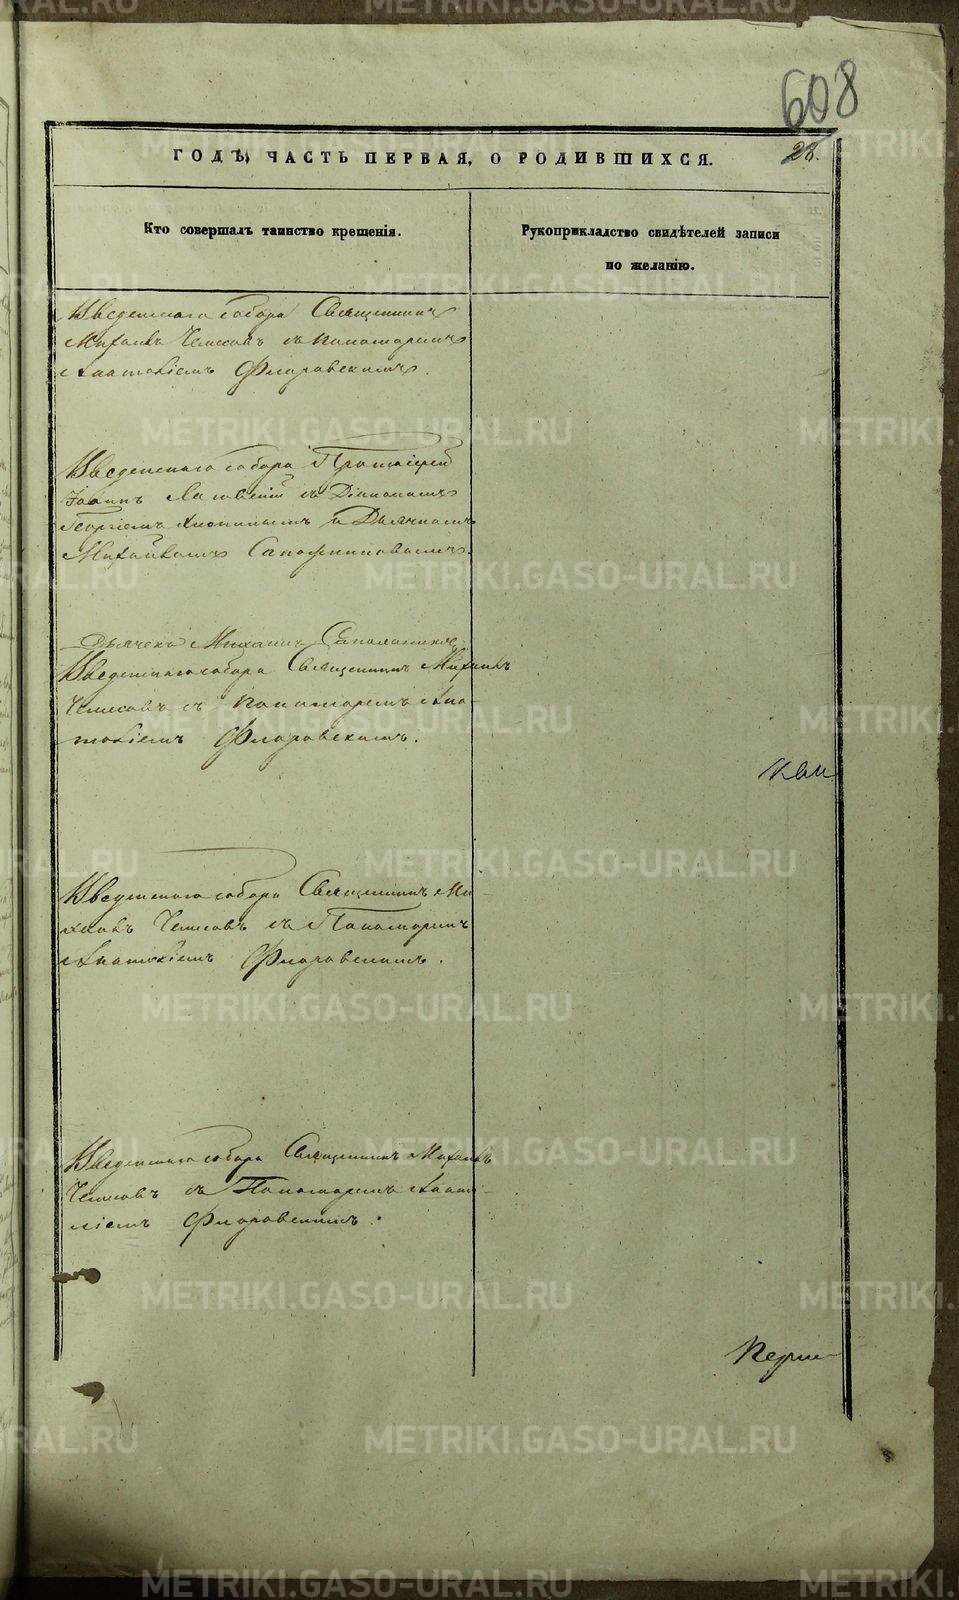 608
28.
ГОДѢ, ЧАСТЬ ПЕРВАЯ, О РОДИВШИХСЯ.
Кто совершалъ таинство крещенія.
Рукоприкладство свидѣтелей записи
по желанію.
Введенскаго собора Священникъ
Михаилъ съ Пономаремъ
Флоровскимъ.
Введенскаго собора Протоіерей
Іоаннъ съ Діакономъ
Георгіемъ и Дьячкомъ
Михаиломъ Сапожниковымъ.
Дьячекъ Михаилъ Сапожниковъ
Введенскаго собора Священникъ Михаилъ
съ Пономаремъ Ана-
толіемъ Флоровскимъ.
Введенскаго собора Священникъ Ми-
хаилъ съ Пономаремъ
Анатоліемъ Флоровскимъ.
Введенскаго собора Священникъ Михаилъ
съ Пономаремъ Анато-
ліемъ Флоровскимъ.
METRIKI.GASO-URAL.RU